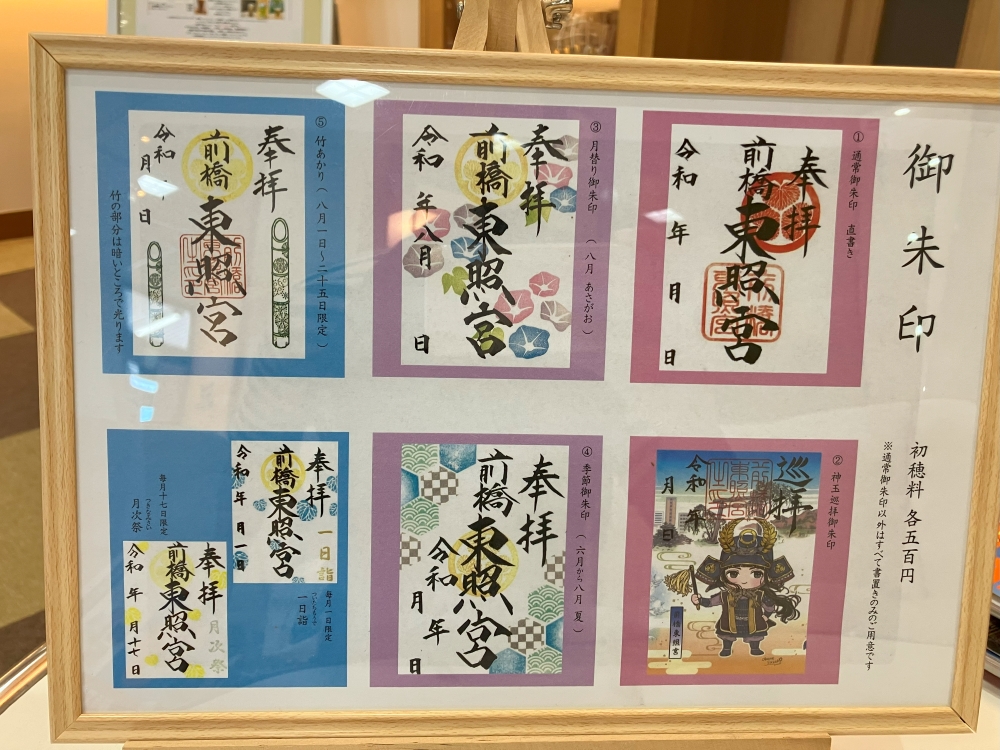 御朱印
初穂料 各五百円
※通常御朱印以外はすべて書置きのみのご用意です
① 通常御朱印 直書き
奉拝
前橋東照宮
令和 年 月 日
② 神玉巡拝御朱印
巡拝
令和 年 月 日
③ 月替り御朱印 (八月 あさがお)
奉拝
前橋東照宮
令和 年八月 日
④ 季節御朱印 (六月から八月 夏)
奉拝
前橋東照宮
令和 年 月 日
⑤ 竹あかり(八月一日~二十五日限定)
奉拝
前橋東照宮
令和 月 日
竹の部分は暗いところで光ります
奉拝
一日詣
前橋東照宮
令和 年 月一日
毎月一日限定
一日詣
毎月十七日限定
月次祭
奉拝
月次祭
前橋東照宮
令和 年 月十七日